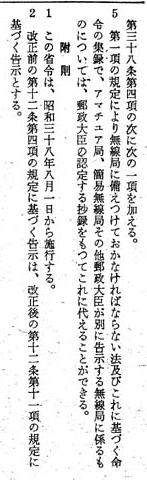 第三十八条第四項の次に次の一項を加える。
５　第一項の規定により無線局に備えつけておかなければならない法及びこれに基づく命
令の集録で、アマチュア局、簡易無線局その他郵政大臣が別に告示する無線局に係るも
のについては、郵政大臣の認定する抄録をもつてこれに代えることができる。
附　則
１　この省令は、昭和三十八年八月一日から施行する。
２　改正前の第十二条第四項の規定に基づく告示は、改正後の第十二条第十一項の規定に
基づく告示とする。